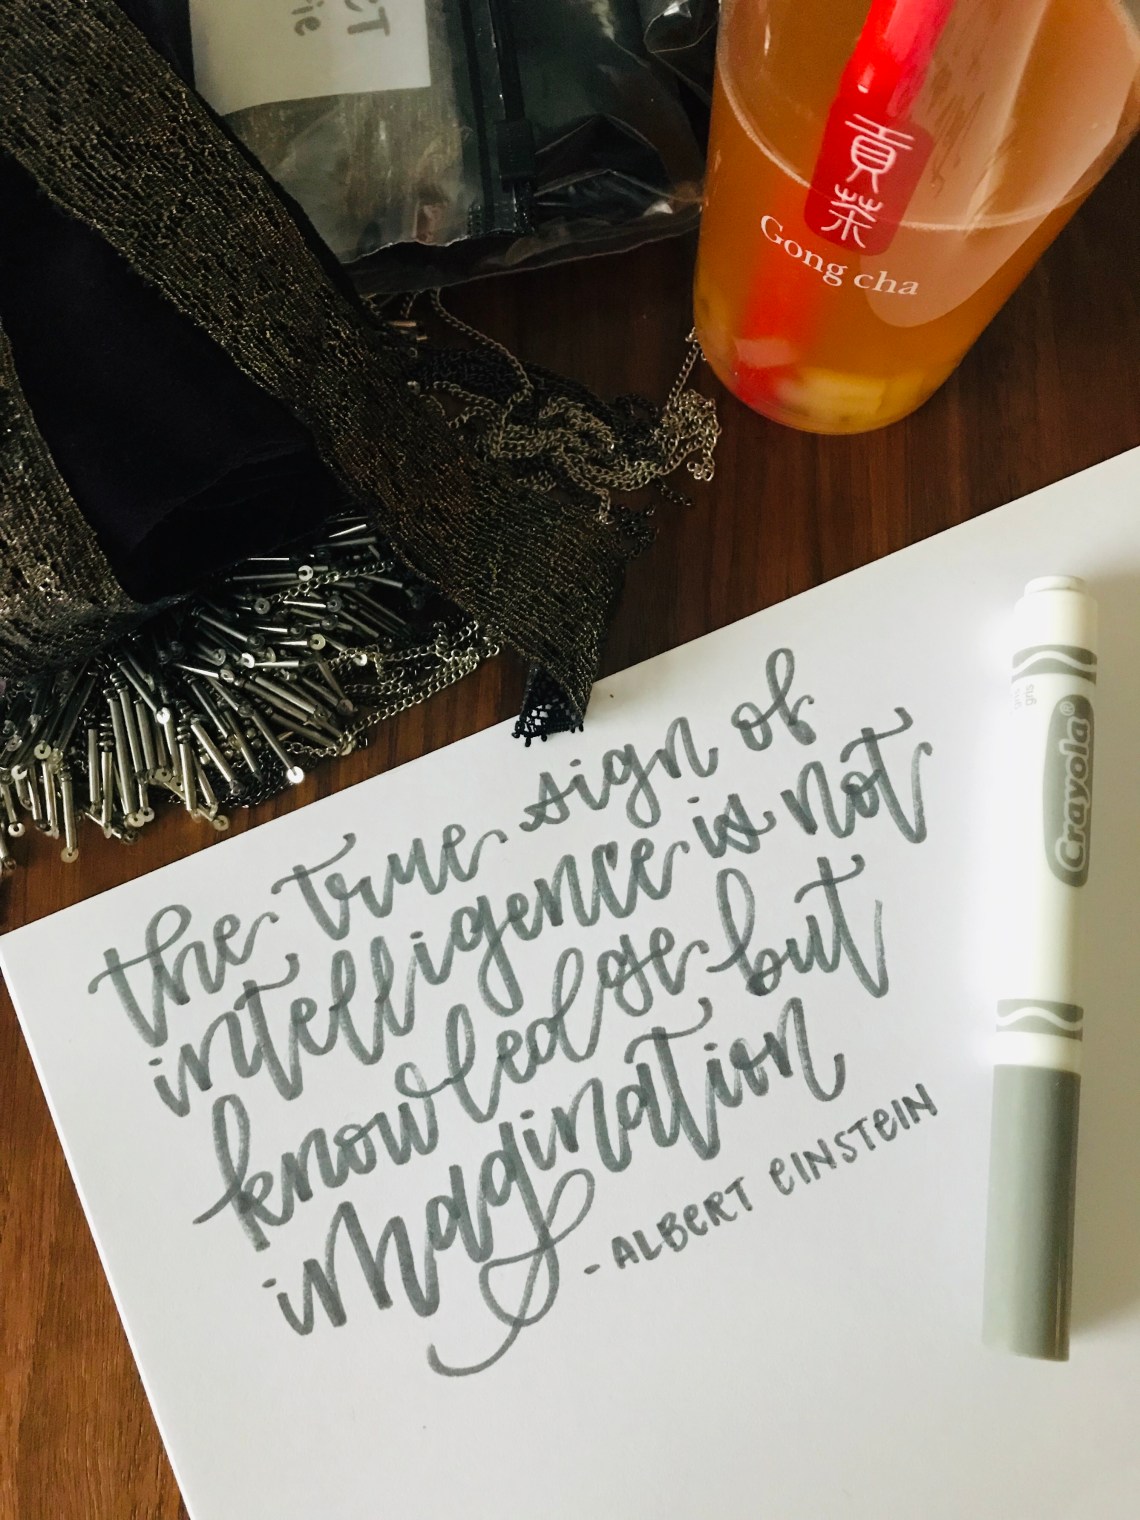 貢茶
Gong cha
the true sign of
intelligence is not
knowledge but
imagination
- ALBERT EINSTEIN
Crayola®
gris